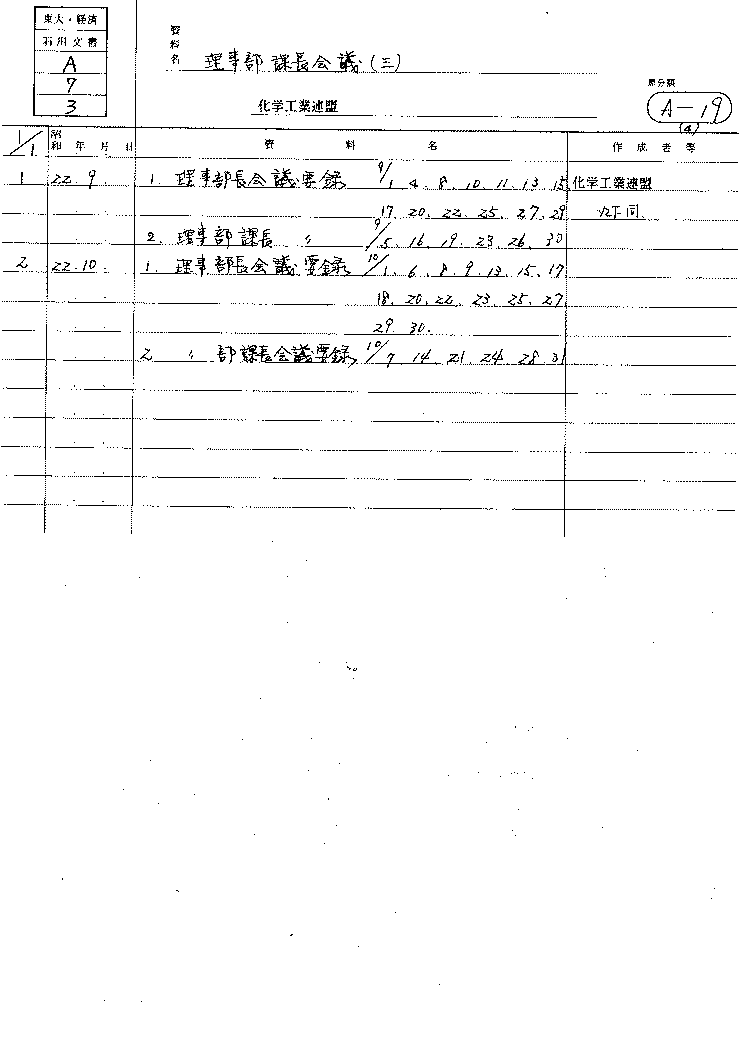 東大・経済
石川文書
A
7
3
資料名 理事部課長会議(三)
化学工業連盟
原分類
A-19
(4)
1/1 昭和 年 月 日 資 料 名 作 成 者 等
1 22. 9. 1. 理事部長会議要録 9/1. 4. 8. 10. 11. 13. 15 化学工業連盟
17. 20. 22. 25. 27. 29 以下同
2. 理事部課長 〃 9/5. 16. 19. 23. 26. 30
2 22. 10. 1. 理事部長会議要録 10/1. 6. 8. 9. 13. 15. 17
18. 20. 22. 23. 25. 27
29. 30.
2 〃 部課長会議要録 10/7 14. 21 24. 28 31